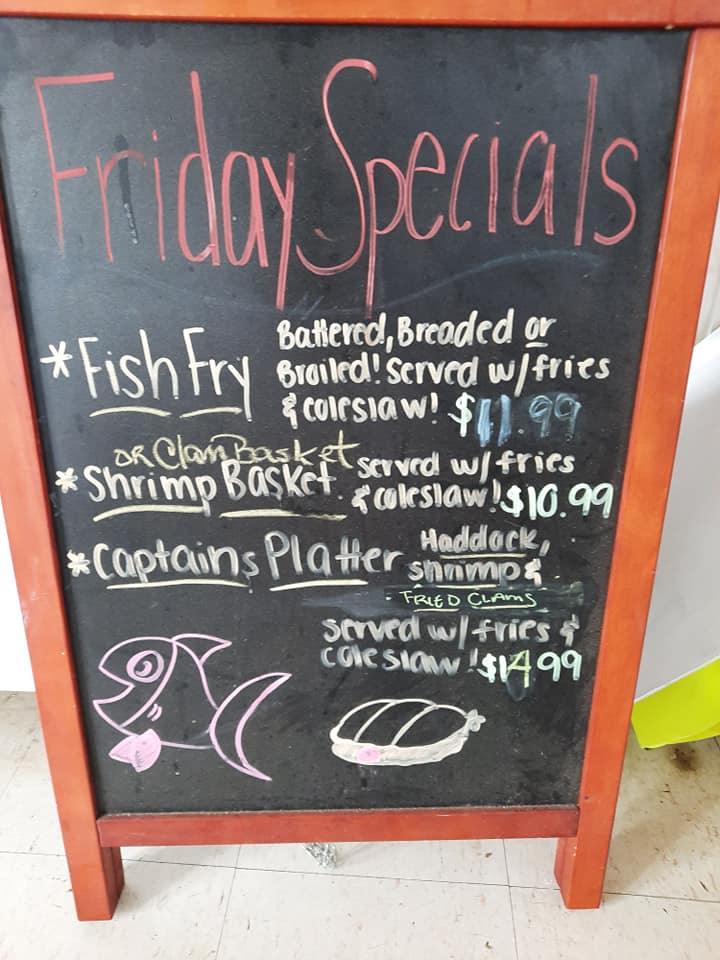 Friday Specials
*Fish Fry Battered, Breaded or
Broiled! Served w/fries
& coleslaw! $11.99
OR Clam Basket
*Shrimp Basket. served w/ fries
& coleslaw! $10.99
*Captains Platter Haddock,
shrimp &
FRIED CLAMS
served w/ fries &
coleslaw! $14.99